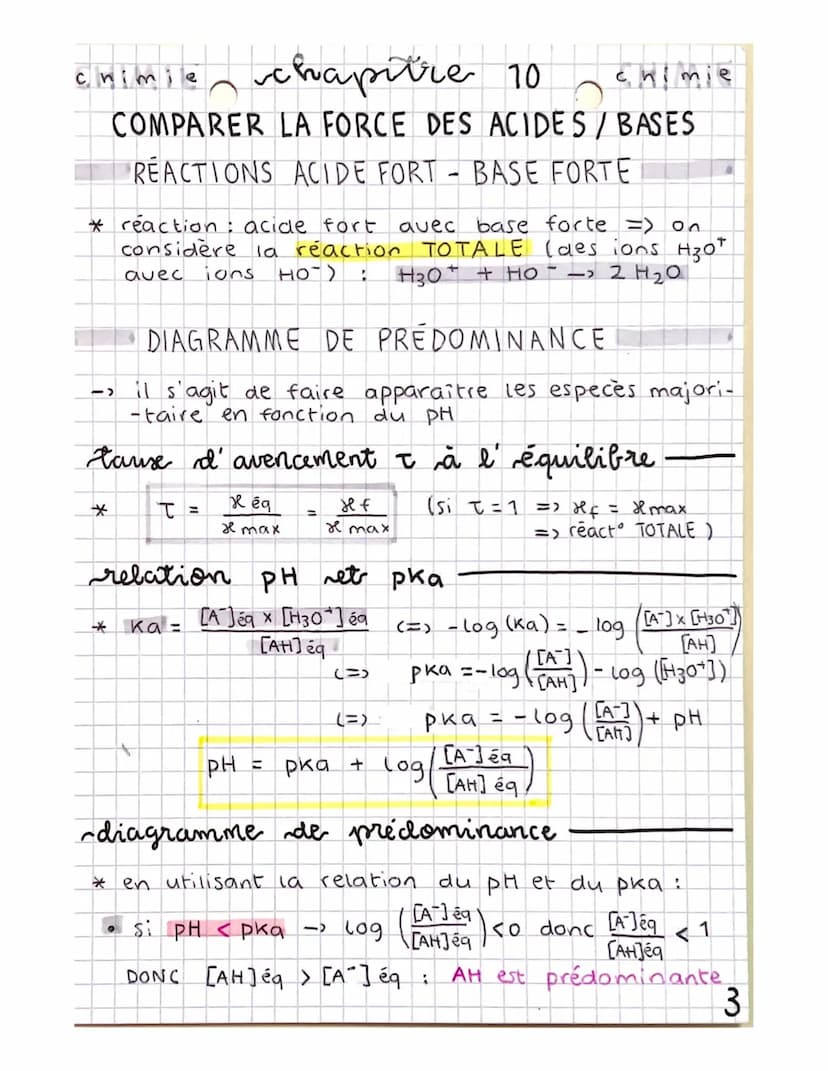 chimie chapitre 10 chimie
COMPARER LA FORCE DES ACIDES / BASES
RÉACTIONS ACIDE FORT - BASE FORTE
* réaction : acide fort avec base forte => on
considère la réaction TOTALE (des ions H3O⁺
avec ions HO⁻) : H3O⁺ + HO⁻ -> 2 H2O
DIAGRAMME DE PRÉDOMINANCE
-> il s'agit de faire apparaître les especès majori-
-taire en fonction du pH
taux d'avencement τ à l'équilibre
* τ = x éq / x max = x f / x max (si τ = 1 => xf = x max
=> réact° TOTALE )
relation pH et pka
* Ka = [A⁻]éq x [H3O⁺]éq / [AH]éq <=> -log (Ka) = - log ([A⁻] x [H3O⁺] / [AH])
<=> pKa = -log ([A⁻] / [AH]) - log ([H3O⁺])
<=> pKa = - log ([A⁻] / [AH]) + pH
pH = pKa + log ([A⁻]éq / [AH] éq)
diagramme de prédominance
* en utilisant la relation du pH et du pKa :
• si pH < pKa -> log ([A⁻]éq / [AH]éq) < 0 donc [A⁻]éq / [AH]éq < 1
DONC [AH]éq > [A⁻] éq : AH est prédominante
3